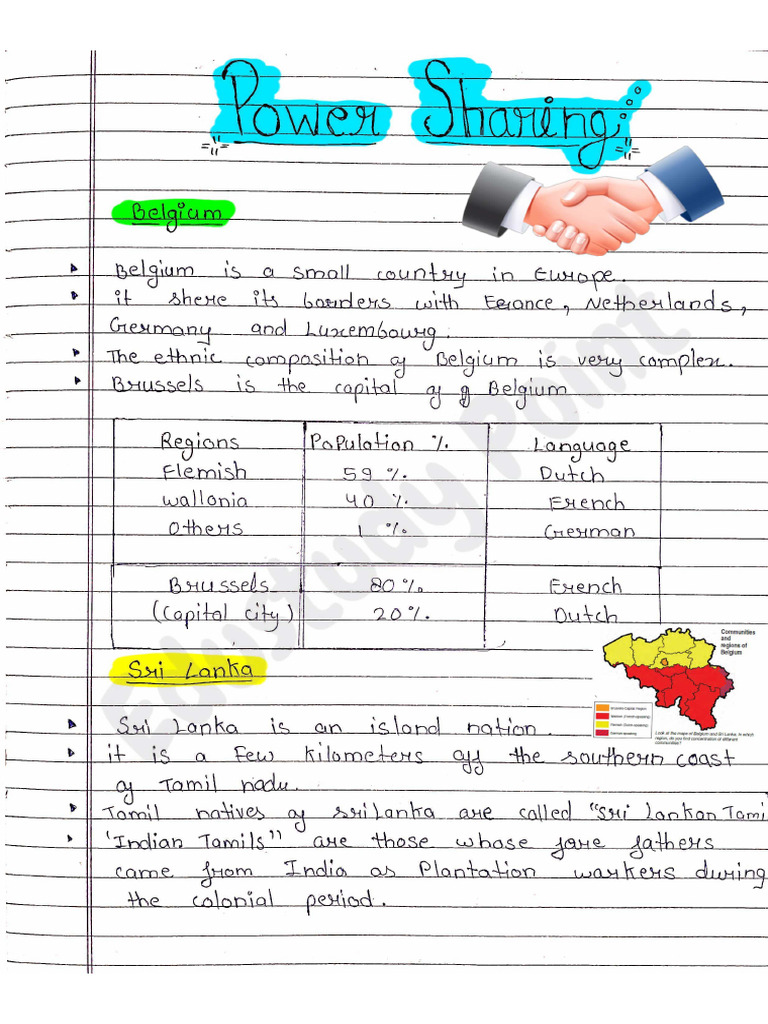 Power Sharing
Belgium
Belgium is a small country in Europe.
it shere its borders with France, Netherlands,
Germany and Luxembourg.
The ethnic composition of Belgium is very complex.
Brussels is the capital of Belgium
Regions Population % Language
Flemish 59 % Dutch
Wallonia 40 % French
Others 1 % German
Brussels 80 % French
(Capital city) 20 % Dutch
Communities
and
regions of
Belgium
Look at the maps of Belgium and Sri Lanka. In which
region, do you find concentration of different
communities?
Sri Lanka
Sri Lanka is an island nation.
it is a few kilometers off the southern coast
of Tamil nadu.
Tamil natives of sri Lanka are called "Sri Lankan Tami
'Indian Tamils" are those whose fore fathers
came from India as Plantation workers during
the colonial period.
Edustudy Point